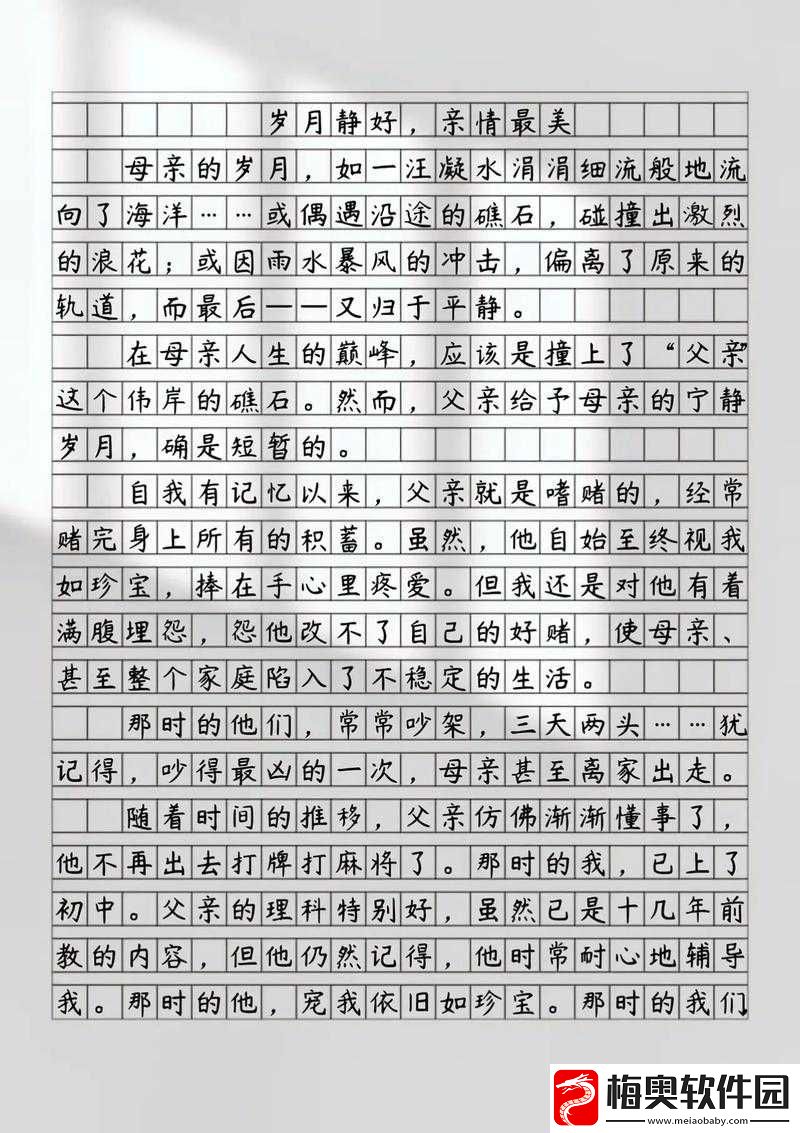 岁月静好，亲情最美
母亲的岁月，如一汪凝水涓涓细流般地流
向了海洋……或偶遇沿途的礁石，碰撞出激烈
的浪花；或因雨水暴风的冲击，偏离了原来的
轨道，而最后——又归于平静。
在母亲人生的巅峰，应该是撞上了“父亲”
这个伟岸的礁石。然而，父亲给予母亲的宁静
岁月，确是短暂的。
自我有记忆以来，父亲就是嗜赌的，经常
赌完身上所有的积蓄。虽然，他自始至终视我
如珍宝，捧在手心里疼爱。但我还是对他有着
满腹埋怨，怨他改不了自己的好赌，使母亲、
甚至整个家庭陷入了不稳定的生活。
那时的他们，常常吵架，三天两头……犹
记得，吵得最凶的一次，母亲甚至离家出走。
随着时间的推移，父亲仿佛渐渐懂事了，
他不再出去打牌打麻将了。那时的我，已上了
初中。父亲的理科特别好，虽然已是十几年前
教的内容，但他仍然记得，他时常耐心地辅导
我。那时的他，宠我依旧如珍宝。那时的我们
梅奥软件园
www.meiaobaby.com